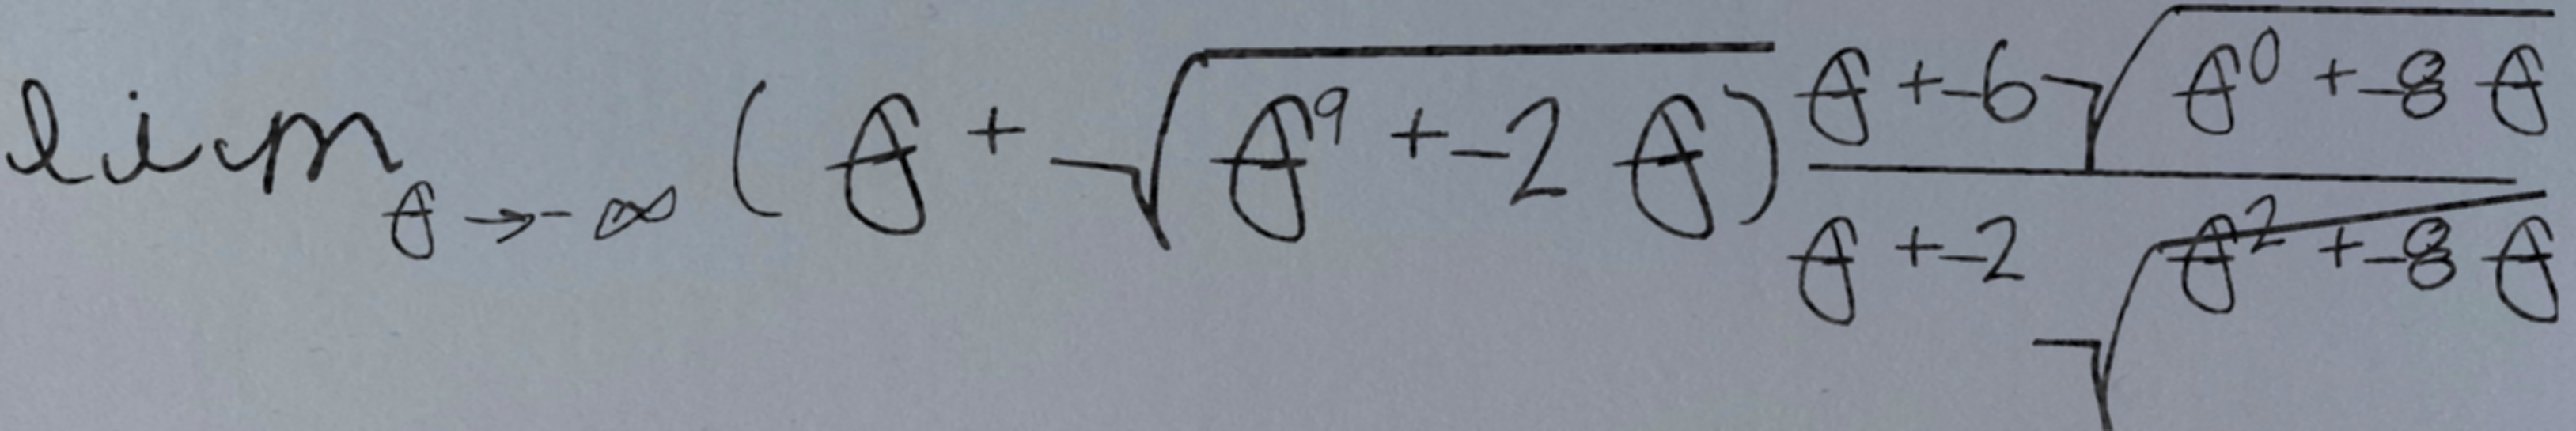 \lim_{\theta \to -\infty} (\theta + \sqrt{\theta^9 + -2 \theta}) \frac{\theta + -6 \sqrt{\theta^0 + -8 \theta}}{\theta + -2 \sqrt{\theta^2 + -8 \theta}}